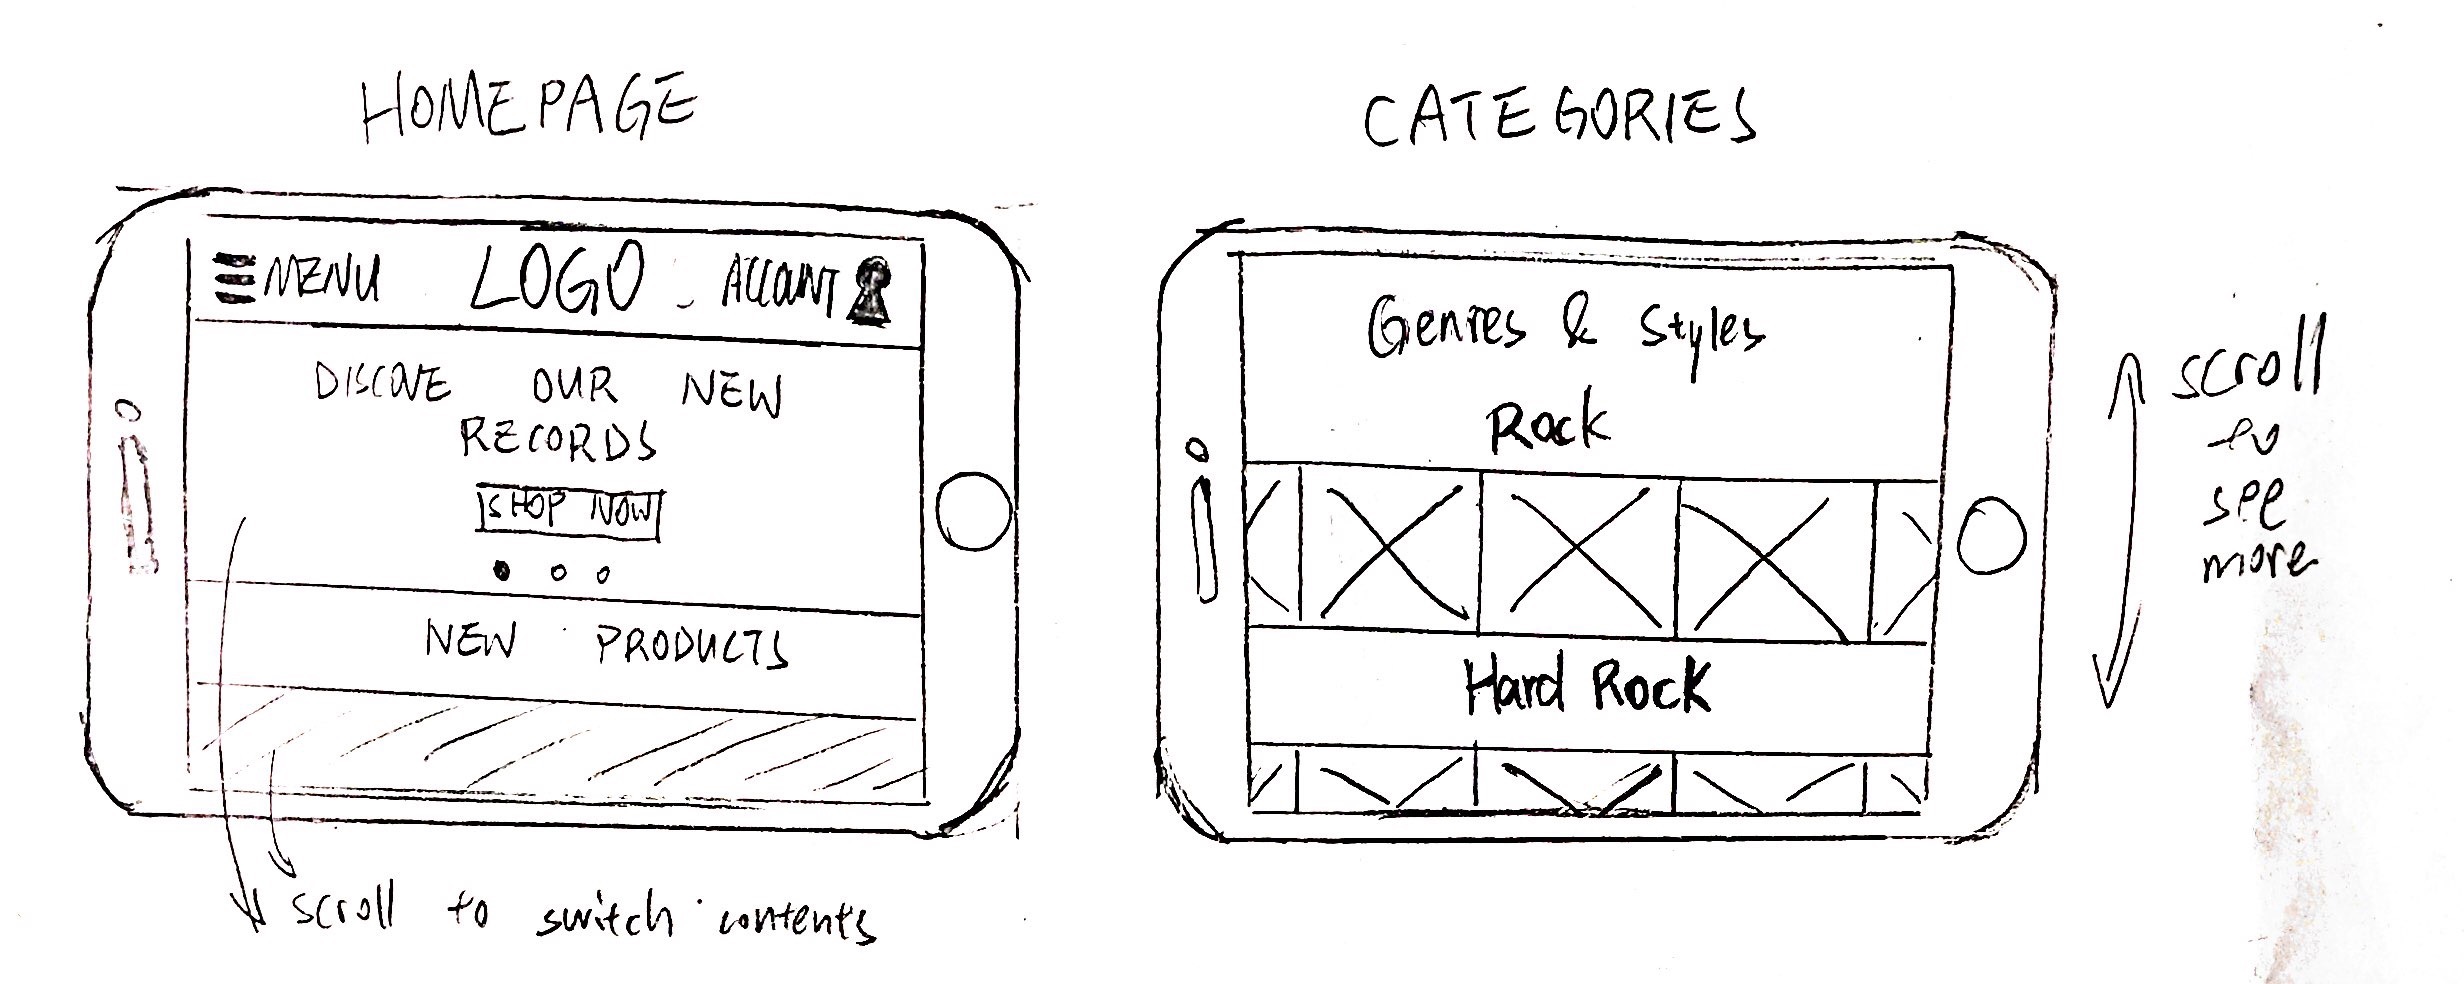 HOMEPAGE
MENU LOGO ACCOUNT
DISCOVE OUR NEW
RECORDS
SHOP NOW
NEW PRODUCTS
scroll to switch contents
CATEGORIES
Genres & Styles
Rock
Hard Rock
scroll
to
see
more